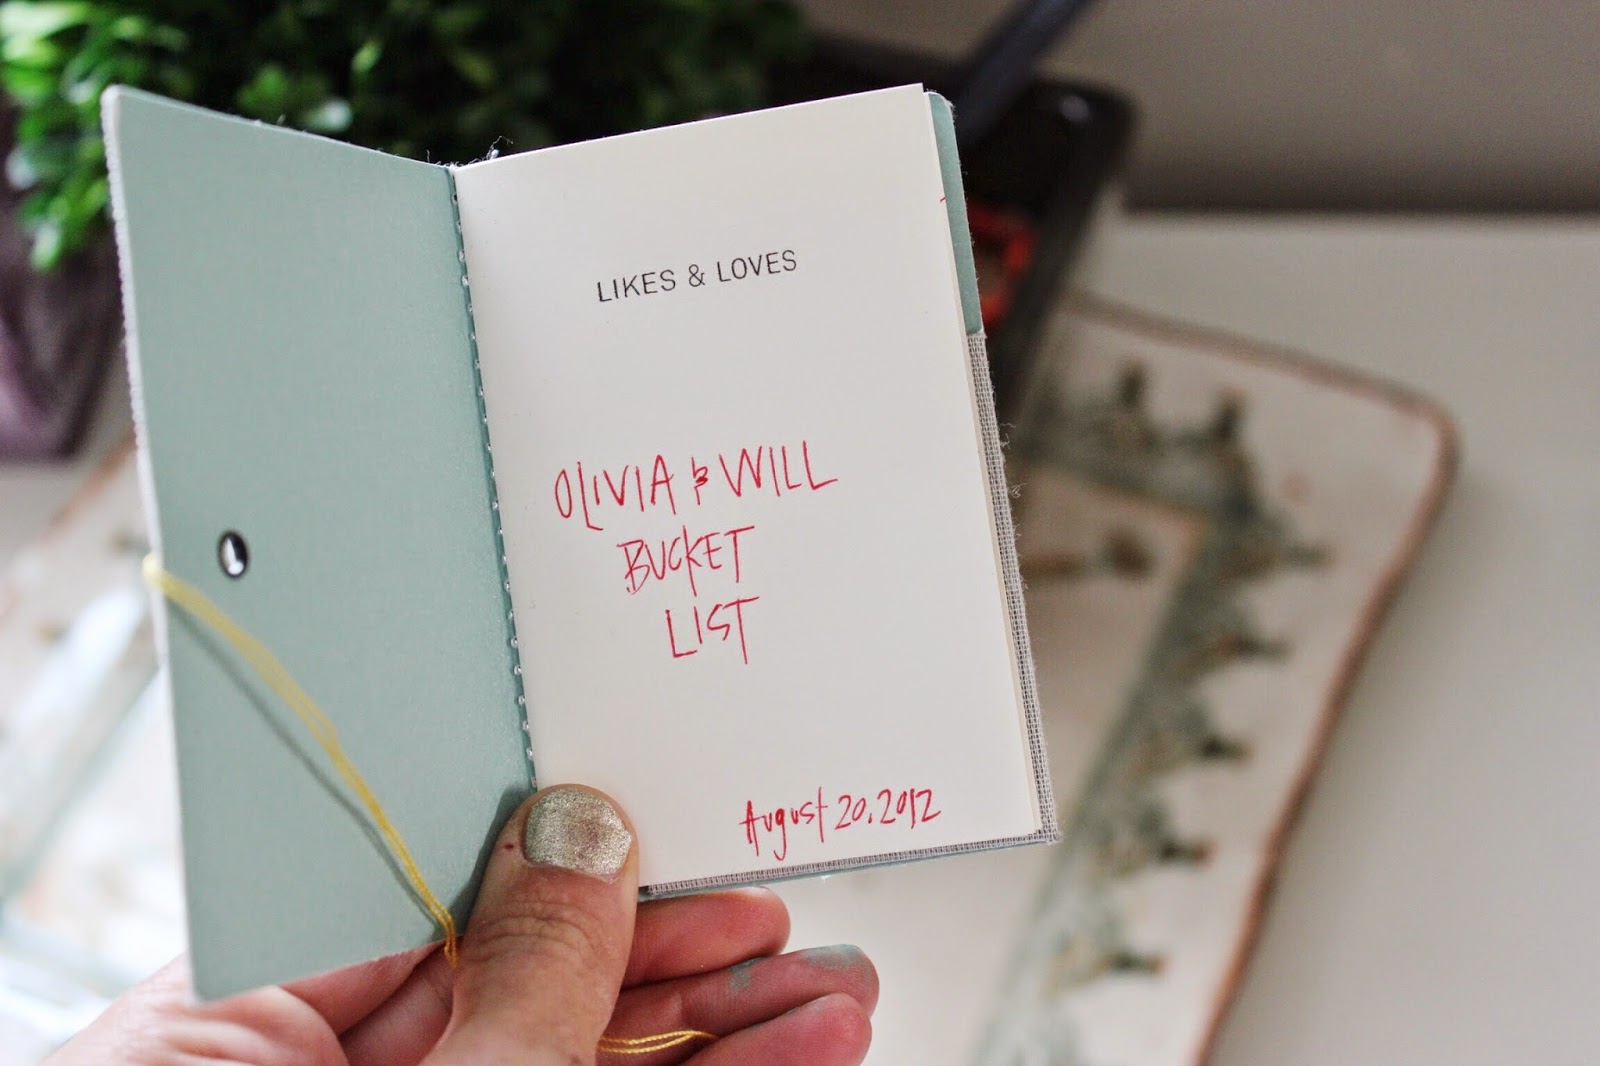 LIKES & LOVES
OLIVIA & WILL
BUCKET
LIST
August 20, 2012